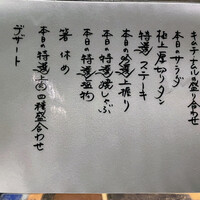 キムチ ナムルの盛り合わせ
本日のサラダ
極上厚切りタン
特選 ステーキ
本日の吟選上握り
本日の特選焼しゃぶ
本日の特選塩物
箸休め
本日の特選上肉四種盛合わせ
デザート